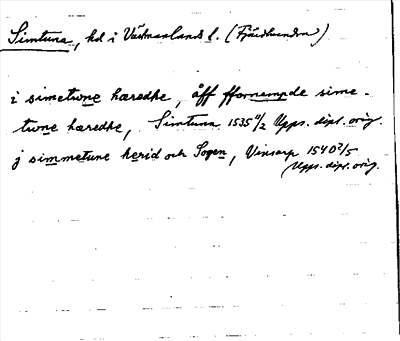 Simtuna, hd i Västmanlands l. (Fjärdhundra)
i simetwne hæredhe, åff ffornempde sime-
twne hæredhe, Simtuna 1535 11/2 Upps. dipl. orig.
j simmetune herid och Sogen, Vinsarp 1540 2/5
Upps. dipl. orig.